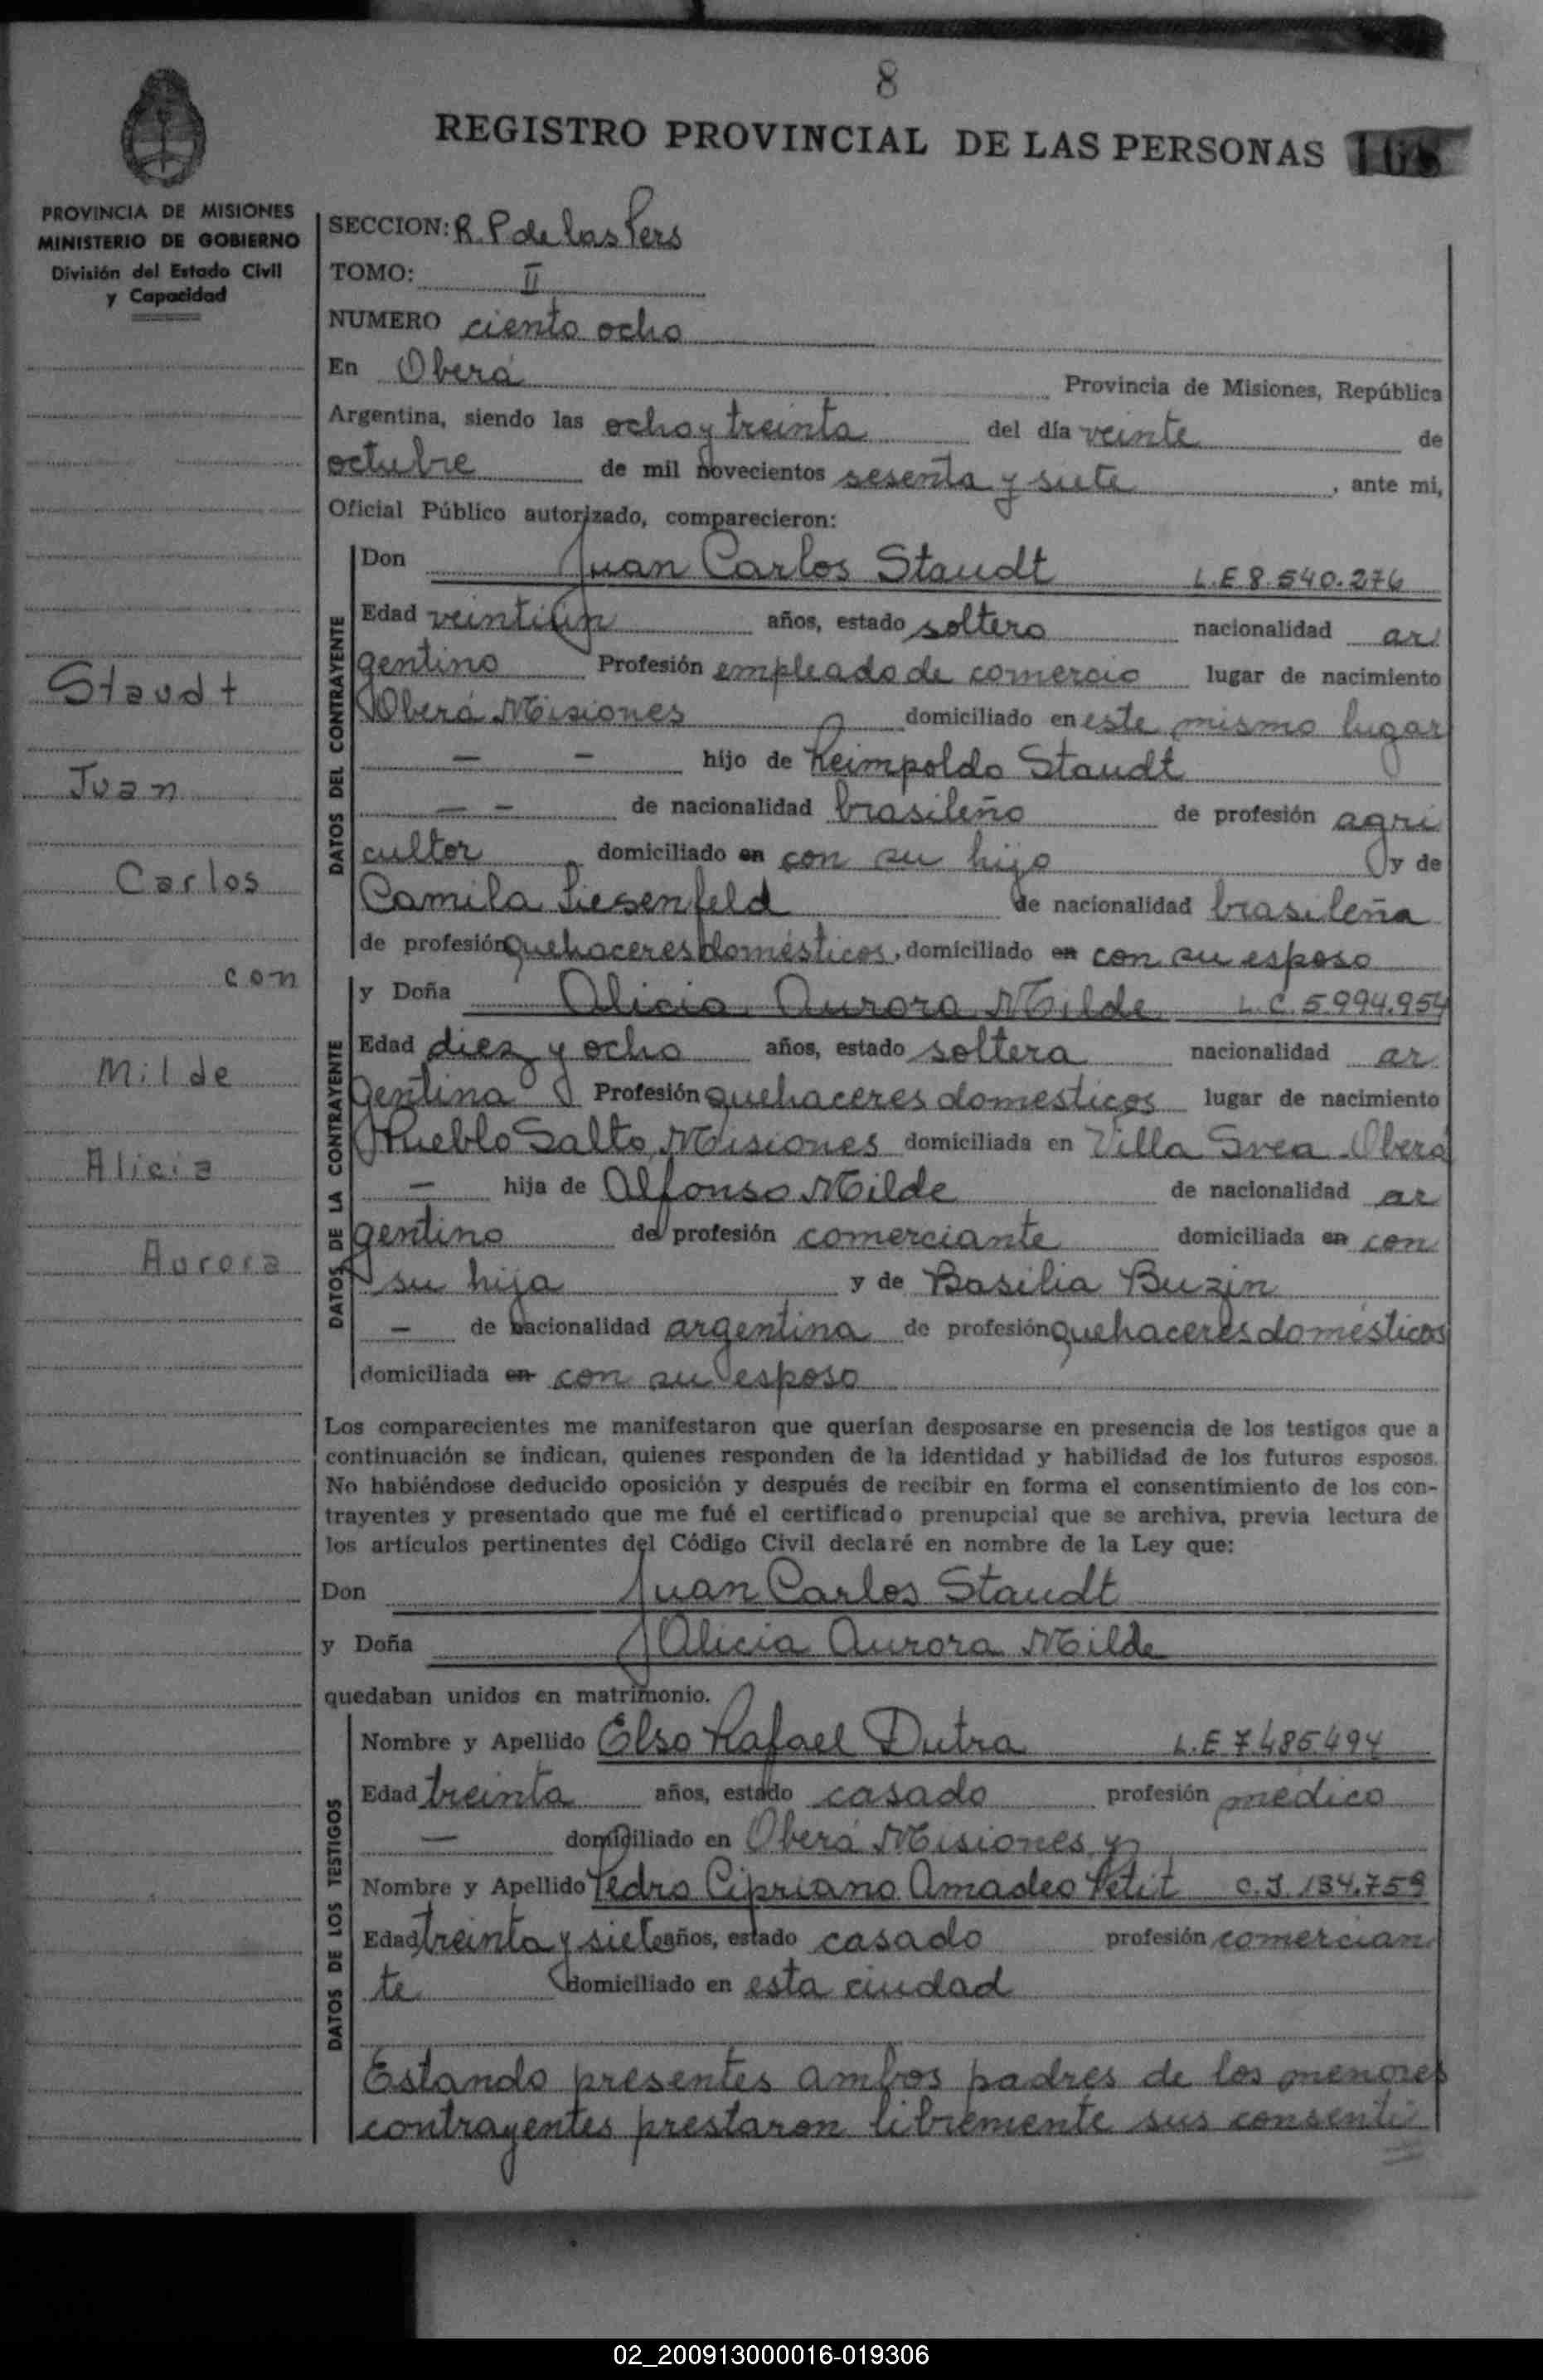 8
REGISTRO PROVINCIAL DE LAS PERSONAS 108
PROVINCIA DE MISIONES
MINISTERIO DE GOBIERNO
División del Estado Civil
y Capacidad
SECCION: R. P de las Pers
TOMO: II
NUMERO ciento ocho
En Oberá Provincia de Misiones, República
Argentina, siendo las ocho y treinta del día veinte de
octubre de mil novecientos sesenta y siete, ante mi,
Oficial Público autorizado, comparecieron:
DATOS DEL CONTRAYENTE
Don Juan Carlos Staudt L.E 8.540.276
Edad veintiún años, estado soltero nacionalidad ar
gentino Profesión empleado de comercio lugar de nacimiento
Oberá Misiones domiciliado en este mismo lugar
— — hijo de Reimpoldo Staudt
— — de nacionalidad brasileño de profesión agri
cultor domiciliado en con su hijo y de
Camila Liesenfeld de nacionalidad brasileña
de profesión quehaceres domésticos, domiciliado en con su esposo
Staudt
Juan
Carlos
con
Milde
Alicia
Aurora
DATOS DE LA CONTRAYENTE
y Doña Alicia Aurora Milde L.C. 5.994.954
Edad diez y ocho años, estado soltera nacionalidad ar
gentina Profesión quehaceres domesticos lugar de nacimiento
Pueblo Salto, Misiones domiciliada en Villa Svea Oberá
— hija de Alfonso Milde de nacionalidad ar
gentino de profesión comerciante domiciliada en con
su hija y de Basilia Buzin
— de nacionalidad argentina de profesión quehaceres domésticos
domiciliada en con su esposo
Los comparecientes me manifestaron que querían desposarse en presencia de los testigos que a
continuación se indican, quienes responden de la identidad y habilidad de los futuros esposos.
No habiéndose deducido oposición y después de recibir en forma el consentimiento de los con-
trayentes y presentado que me fué el certificado prenupcial que se archiva, previa lectura de
los artículos pertinentes del Código Civil declaré en nombre de la Ley que:
Don Juan Carlos Staudt
y Doña Alicia Aurora Milde
quedaban unidos en matrimonio.
DATOS DE LOS TESTIGOS
Nombre y Apellido Elso Rafael Dutra L.E 7.485.494
Edad treinta años, estado casado profesión medico
— domiciliado en Oberá Misiones y
Nombre y Apellido Pedro Cipriano Amadeo Petit C.I. 134.759
Edad treinta y siete años, estado casado profesión comercian
te domiciliado en esta ciudad
Estando presentes ambos padres de los menores
contrayentes prestaron libremente sus consenti
02_200913000016-019306